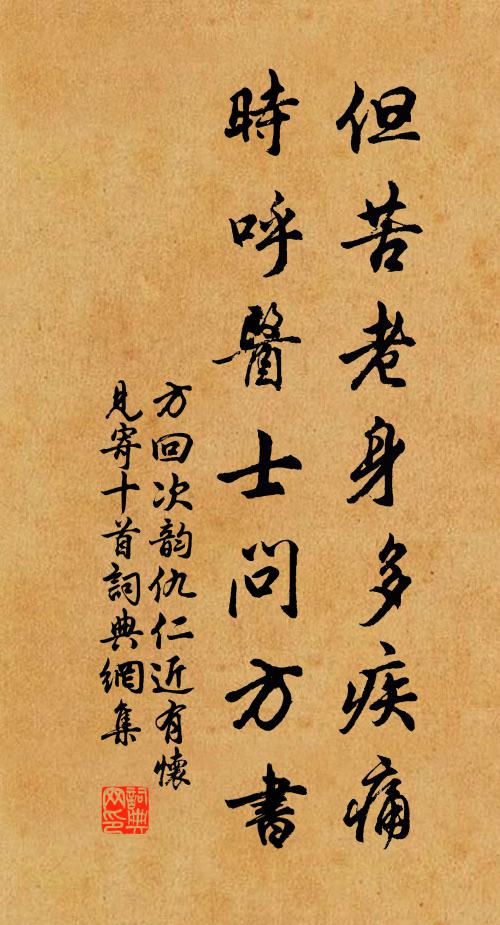 但苦老身多疾痛
時呼醫士問方書
方回次韵仇仁近有懷
見寄十首詞典網集
詞典
网印